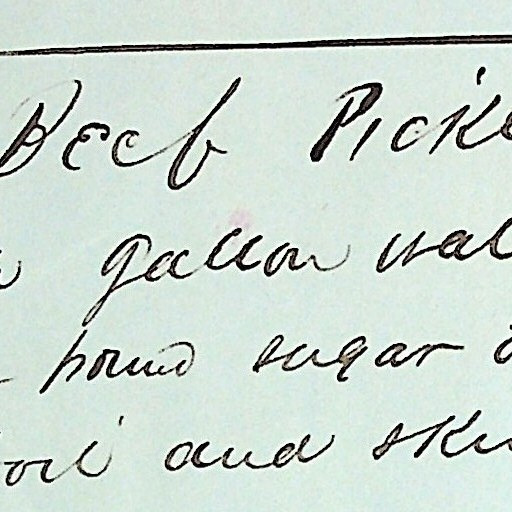 Beef Pickl
gallon wat
pound sugar
boil and skim